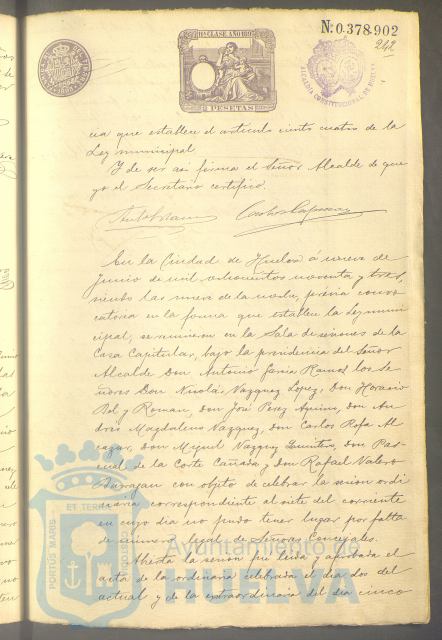 Nº 0.378.902
242
11ª CLASE. AÑO 189
PESETAS
ALCALDIA CONSTITUCIONAL DE HUELVA
cia que establece el artículo ciento cuatro de la
Ley municipal
Y de ser asi firma el Señor Alcalde de que
yo el Secretario certifico.
En la Ciudad de Huelva á nueve de
Junio de mil ochocientos noventa y tres,
siendo las nueve de la noche, prévia convo
catoria en la forma que establece la Ley muni
cipal, se reunieron en la Sala de sesiones de la
Casa Capitular, bajo la presidencia del Señor
Alcalde Don Antonio García Ramos los Se
ñores Don Nicolás Vazquez Lopez, Don Horacio
Bel y Roman, don José Perez Aquino, don An
drés Magdaleno Vazquez, don Carlos Rofa Al
cazar, don Miguel Vazquez Quintero, don Pas
cual de la Corte Cañada, y don Rafael Valero
Barragan con objeto de celebrar la sesion ordi
naria correspondiente al siete del corriente
en cuyo dia no pudo tener lugar por falta
de número legal de Señores Concejales.
Abierta la sesion fué leida y aprobada el
acta de la ordinaria celebrada el dia dos del
actual y de la extraordinaria del dia cinco
PORTUS MARIS ET TERRAE CUSTODIA
Ayuntamiento de
HUELVA